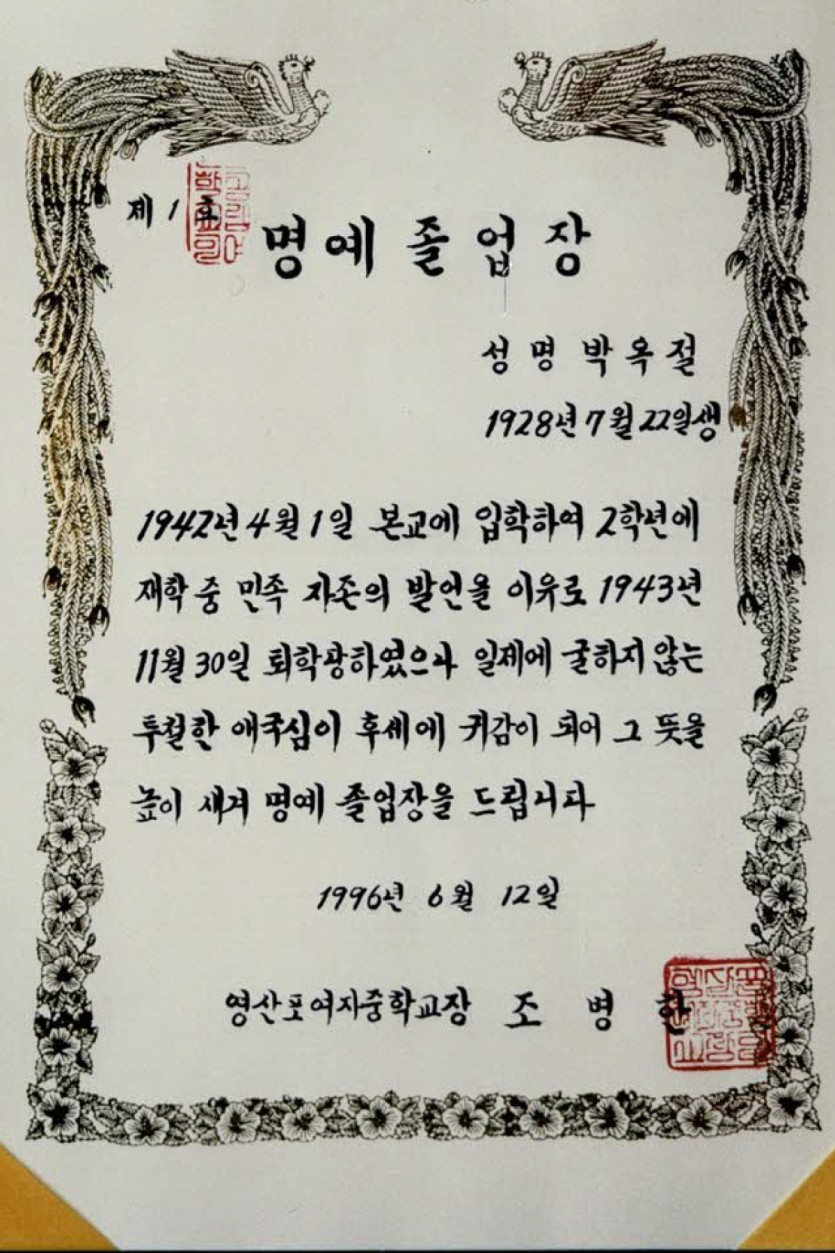 제 1 호
명예 졸업장
성명 박옥절
1928년 7월 22일생
1942년 4월 1일 본교에 입학하여 2학년에
재학 중 민족 자존의 발언을 이유로 1943년
11월 30일 퇴학당하였으나 일제에 굴하지 않는
투철한 애국심이 후세에 귀감이 되어 그 뜻을
높이 새겨 명예 졸업장을 드립니다
1996년 6월 12일
영산포여자중학교장 조 병 한